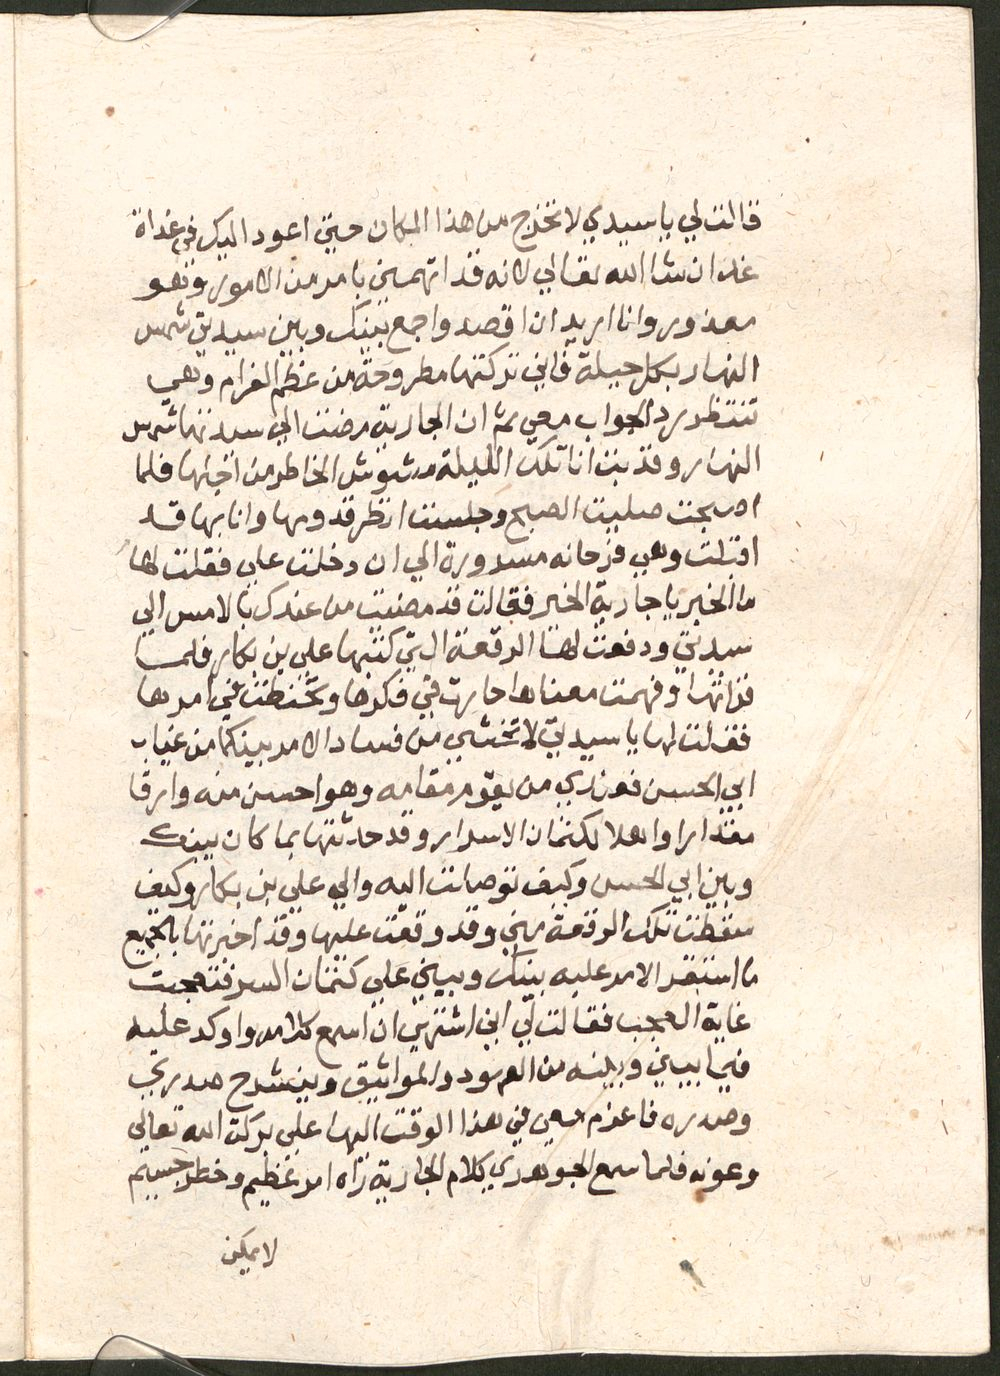 قالت لي يا سيدي لا تخرج من هذا المكان حتي اعود اليك في غداة
غد ان شا الله تعالي لانه قد اتهمني بامر من الامور وهو
معذور وانا اريد ان اقصد واجمع بينك وبين سيدتي شمس
النهار بكل حيلة فاني تركتها مطروحة من عظم الغرام وهي
تنتظر رد الجواب معي ثم ان الجارية مضت الي سيدتها شمس
النهار وقد بت انا تلك الليلة مشوش الخاطر من اجلها فلما
اصبحت صليت الصبح وجلست انظر قدومها وانا بها قد
اقبلت وهي فرحانه مسرورة الي ان دخلت علي فقلت لها
ما الخبر يا جارية الخير فقالت قد مضيت من عندك بالامس الي
سيدتي ودفعت لها الرقعة التي كتبها علي بن بكار فلما
قراتها وفهمت معناها حارت في فكرها وتخبطت في امرها
فقلت لها يا سيدتي لا تخشي من فساد الامر بينكما من غياب
ابي الحسن فعندي من يقوم مقامه وهو احسن منه وارقا
مقدارا واهلا لكتمان الاسرار وقد حدثتها بما كان بينك
وبين ابي الحسن وكيف توصلت اليه والي علي بن بكار وكيف
سقطت تلك الرقعة مني وقد وقعت عليها وقد اخبرتها بالجميع
ما استقر الامر عليه بينك وبيني علي كتمان السر فتعجبت
غاية العجب فقالت لي اني اشتهي ان اسمع كلامه واوكد عليه
فيما بيني وبينه من العهود والمواثيق وينشرح صدري
وصدره فاعزم معي في هذا الوقت اليها علي بركت الله تعالي
وعونه فلما سمع الجوهري كلام الجارية راه امر عظيم وخطر جسيم
لا يمكن